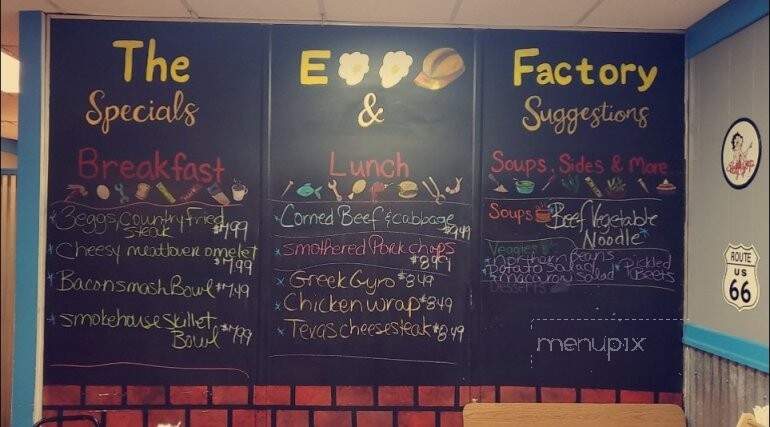 The E Factory
Specials & Suggestions
Breakfast
*3 eggs, Country fried
steak $7.99
*Cheesy meatlover omelet
$7.99
*Bacon smash Bowl $7.49
*smokehouse skillet
Bowl $7.99
Lunch
*Corned Beef & cabbage
$9.49
*smothered Pork chops
$8.99
*Greek Gyro $8.49
*Chicken wrap $8.49
*Texas cheesesteak $8.49
Soups, Sides & More
Soups Beef Vegetable
Noodle
Veggies
*northern Beans
*Potato Salad *Pickled
*macaroni Salad Beets
Desserts
ROUTE
US
66
menupix